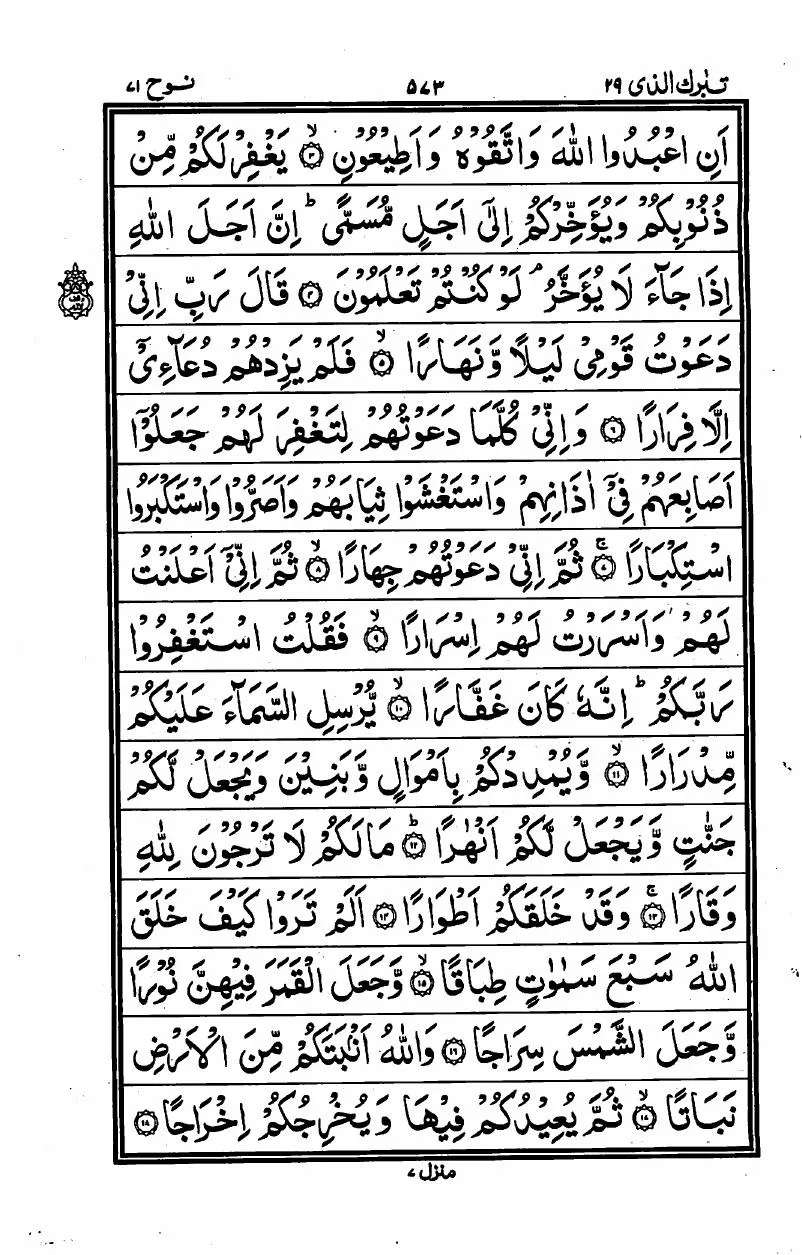 تبٰرك الذی ۲۹ ۵۷۳ نوح ۷۱
اَنِ اعْبُدُوا اللّٰهَ وَاتَّقُوْهُ وَاَطِيْعُوْنِ ۙ‏﴿۳﴾ يَغْفِرْ لَكُمْ مِّنْ
ذُنُوْبِكُمْ وَيُؤَخِّرْكُمْ اِلٰٓى اَجَلٍ مُّسَمًّى ؕ اِنَّ اَجَلَ اللّٰهِ
اِذَا جَآءَ لَا يُؤَخَّرُ ۘ لَوْ كُنْتُمْ تَعْلَمُوْنَ ﴿۴﴾ قَالَ رَبِّ اِنِّىْ
دَعَوْتُ قَوْمِىْ لَيْلًا وَّنَهَارًا ۙ﴿۵﴾ فَلَمْ يَزِدْهُمْ دُعَآءِىْۤ
اِلَّا فِرَارًا ﴿۶﴾ وَاِنِّىْ كُلَّمَا دَعَوْتُهُمْ لِتَغْفِرَ لَهُمْ جَعَلُوْۤا
اَصَابِعَهُمْ فِىْۤ اٰذَانِهِمْ وَاسْتَغْشَوْا ثِيَابَهُمْ وَاَصَرُّوْا وَاسْتَكْبَرُوا
اسْتِكْبَارًا ۚ﴿۷﴾ ثُمَّ اِنِّىْ دَعَوْتُهُمْ جِهَارًا ۙ﴿۸﴾ ثُمَّ اِنِّىْۤ اَعْلَنْتُ
لَهُمْ وَاَسْرَرْتُ لَهُمْ اِسْرَارًا ۙ﴿۹﴾ فَقُلْتُ اسْتَغْفِرُوْا
رَبَّكُمْ ؕ اِنَّهٗ كَانَ غَفَّارًا ۙ﴿۱۰﴾ يُّرْسِلِ السَّمَآءَ عَلَيْكُمْ
مِّدْرَارًا ۙ﴿۱۱﴾ وَّيُمْدِدْكُمْ بِاَمْوَالٍ وَّبَنِيْنَ وَيَجْعَلْ لَّكُمْ
جَنّٰتٍ وَّيَجْعَلْ لَّكُمْ اَنْهٰرًا ؕ﴿۱۲﴾ مَا لَكُمْ لَا تَرْجُوْنَ لِلّٰهِ
وَقَارًا ۚ﴿۱۳﴾ وَقَدْ خَلَقَكُمْ اَطْوَارًا ﴿۱۴﴾ اَلَمْ تَرَوْا كَيْفَ خَلَقَ
اللّٰهُ سَبْعَ سَمٰوٰتٍ طِبَاقًا ۙ﴿۱۵﴾ وَّجَعَلَ الْقَمَرَ فِيْهِنَّ نُوْرًا
وَّجَعَلَ الشَّمْسَ سِرَاجًا ﴿۱۶﴾ وَاللّٰهُ اَنْۢبَتَكُمْ مِّنَ الْاَرْضِ
نَبَاتًا ۙ﴿۱۷﴾ ثُمَّ يُعِيْدُكُمْ فِيْهَا وَيُخْرِجُكُمْ اِخْرَاجًا ﴿۱۸﴾
منزل ۷